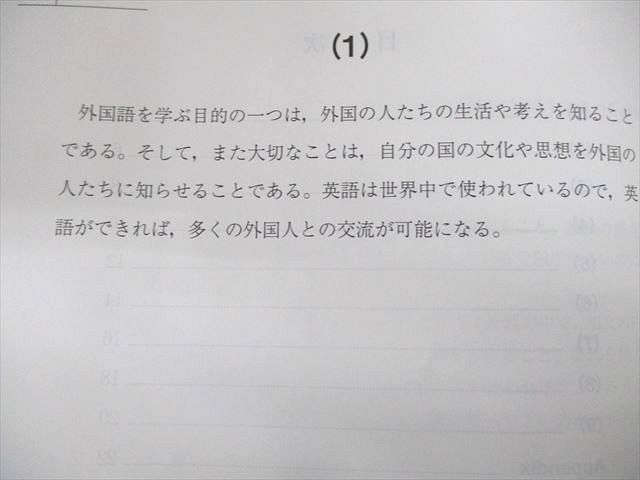 (1)
外国語を学ぶ目的の一つは，外国の人たちの生活や考えを知ること
である。そして，また大切なことは，自分の国の文化や思想を外国の
人たちに知らせることである。英語は世界中で使われているので，英
語ができれば，多くの外国人との交流が可能になる。